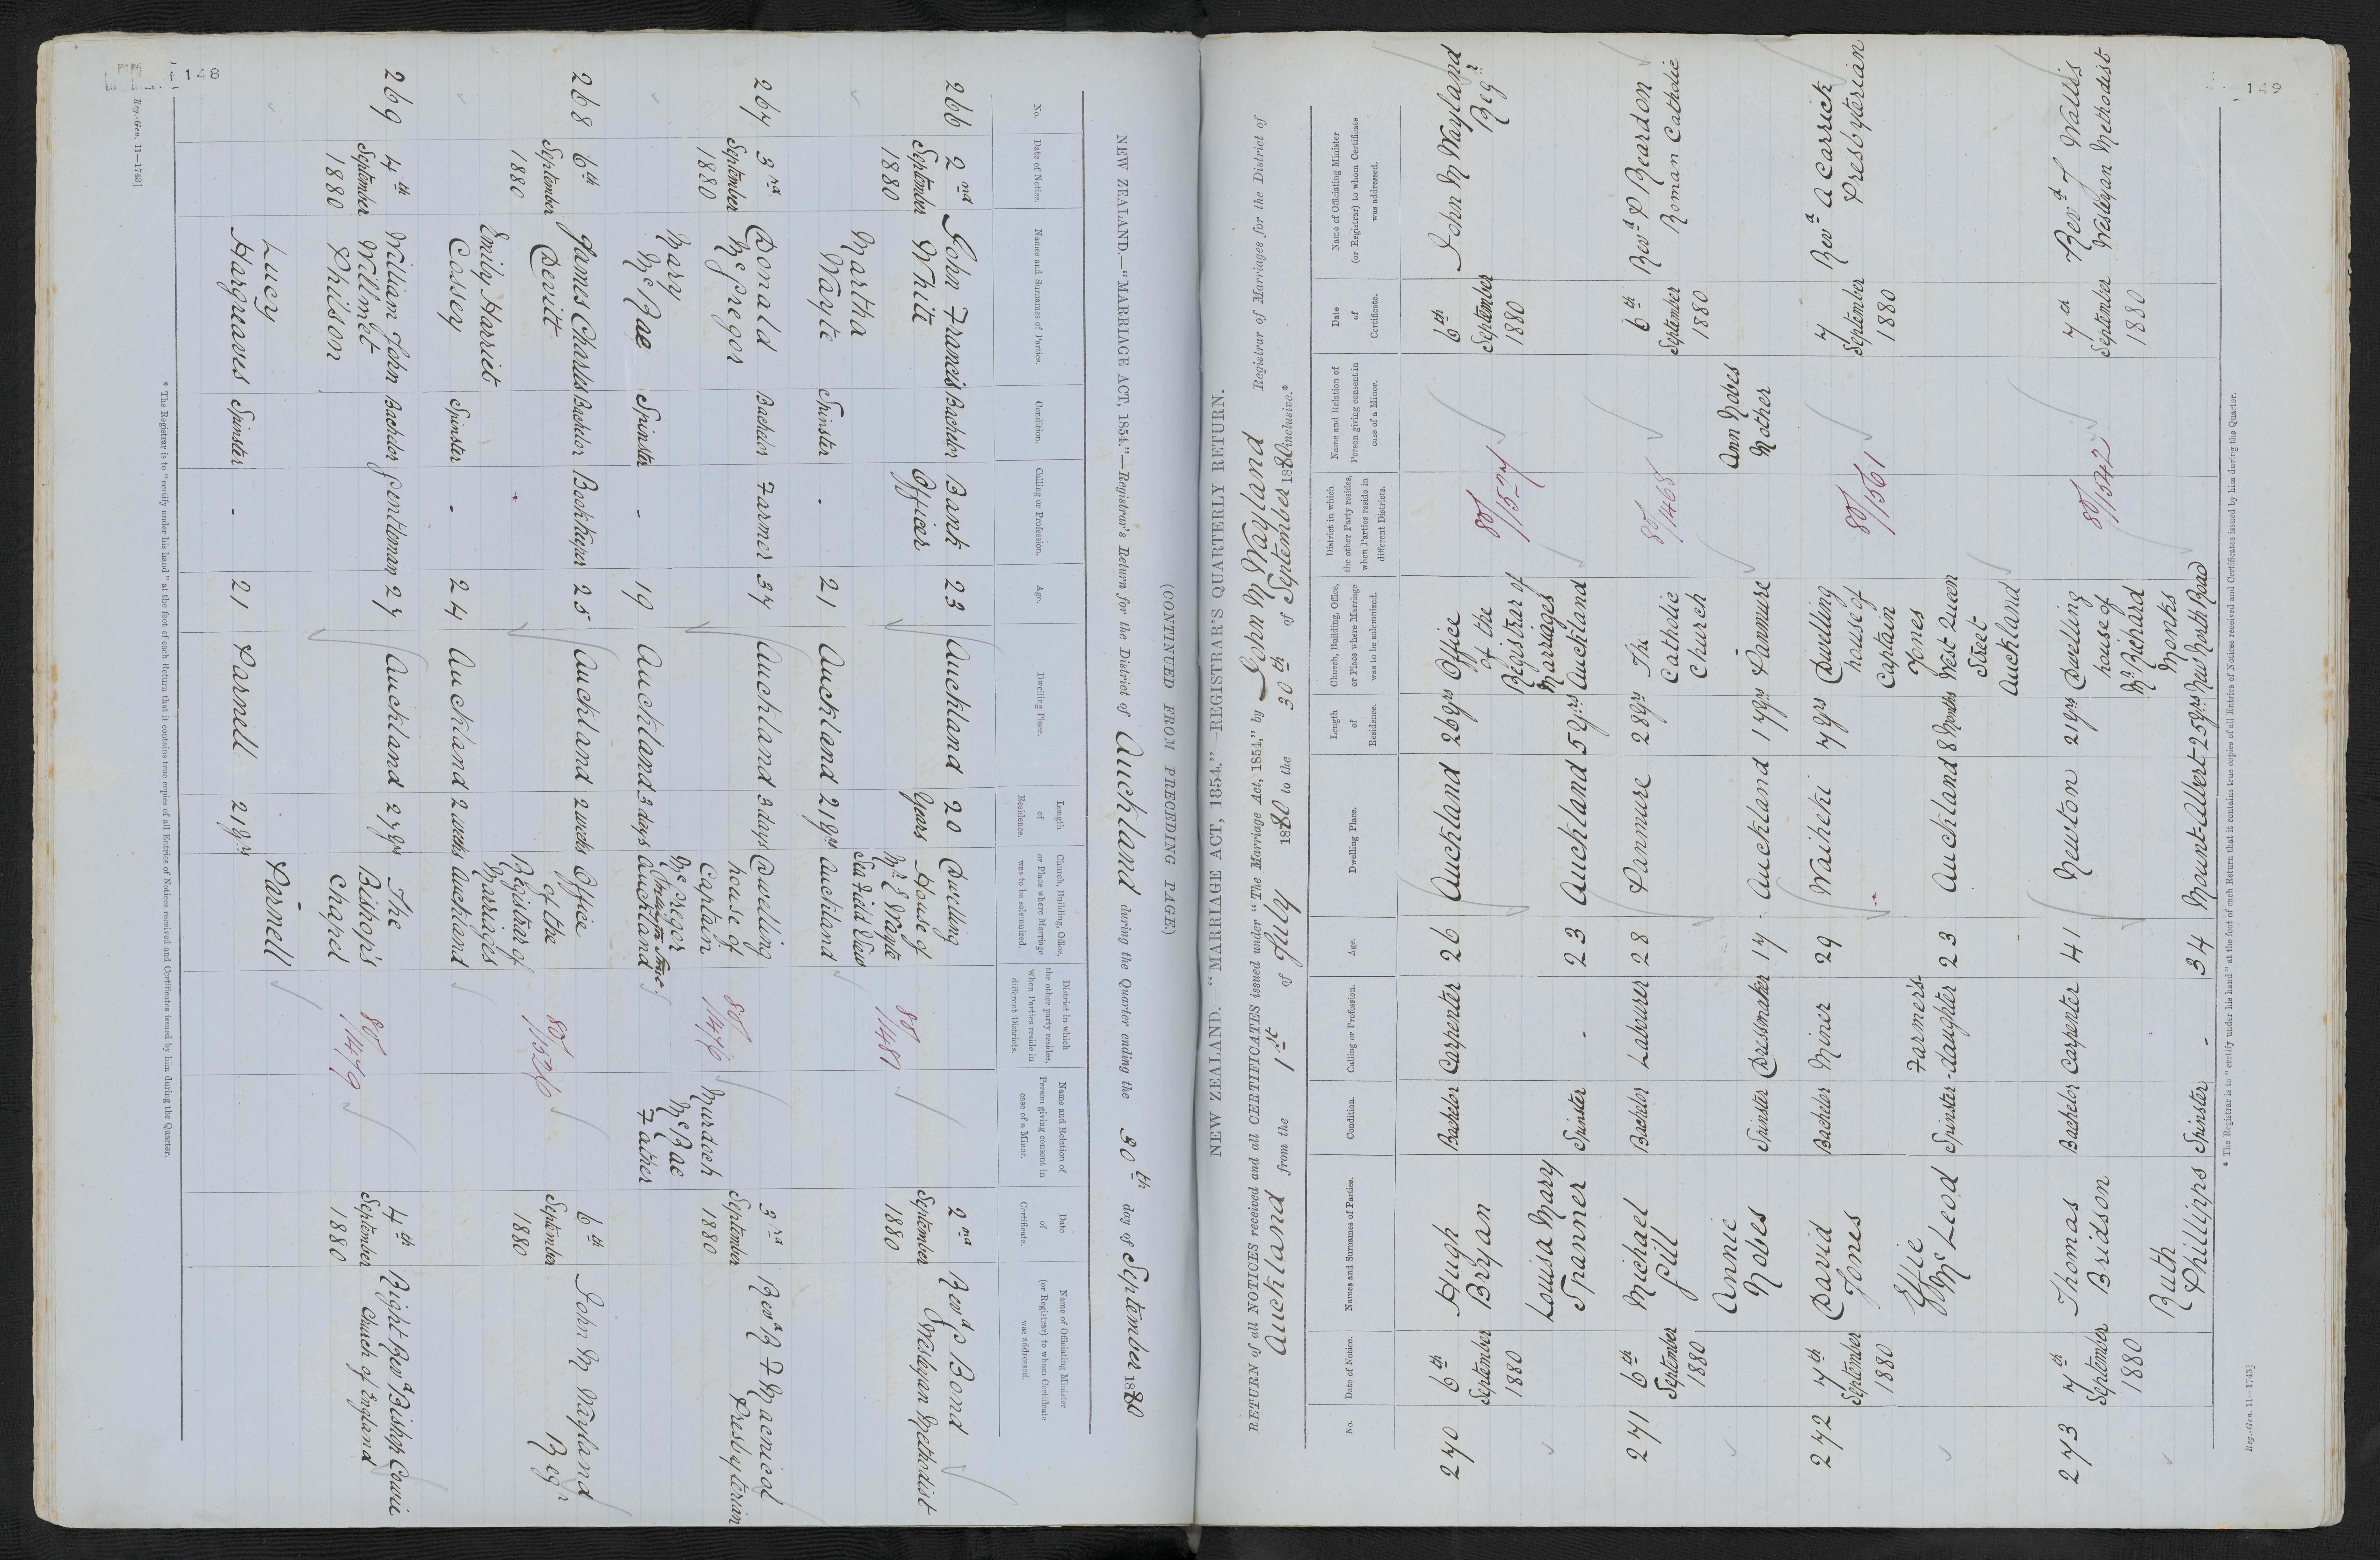 148
NEW ZEALAND.—"MARRIAGE ACT, 1854."—Registrar's Return for the District of Auckland during the Quarter ending the 30th day of September 1880
(CONTINUED FROM PRECEDING PAGE.)
No.
Date of Notice.
Names and Surnames of Parties.
Condition.
Calling or Profession.
Age.
Dwelling Place.
Length of Residence.
Church, Building, Office, or Place where Marriage was to be solemnized.
District in which the other party resides, when Parties reside in different Districts.
Name and Relation of Person giving consent in case of a Minor.
Date of Certificate.
Name of Officiating Minister (or Registrar) to whom Certificate was addressed.
266 2nd John Francis Bachelor Bank 23 Auckland 20 Dwelling 2nd Revd J Bond
September White Officer Years House of 80/1481 September Wesleyan Methodist
1880 Mr E Wayte 1880
Martha Sea Field View
Wayte Spinster - 21 Auckland 21 yrs Auckland
267 3rd Donald Bachelor Farmer 37 Auckland 3 days Dwelling 3rd Revd R F Macnicol
September McGregor house of 80/1476 September Presbyterian
1880 Captain Murdoch 1880
Mary McGregor McRae
McRae Spinster - 19 Auckland 3 days Auckland Father
268 6th James Charles Bachelor Bookkeeper 25 Auckland 2 weeks Office 6th John M Wayland
September Devitt of the 80/1526 September Regr
1880 Registrar of 1880
Emily Harriet Marriages
Cossey Spinster - 24 Auckland 2 weeks Auckland
269 4th William John Bachelor Gentleman 27 Auckland 27 yrs The 4th Right Revd Bishop Cowie
September Willmet Bishop's 80/1479 September Church of England
1880 Philson Chapel 1880
Lucy Parnell
Hargreaves Spinster - 21 Parnell 21 yrs
* The Registrar is to "certify under his hand" at the foot of each Return that it contains true copies of all Entries of Notices received and Certificates issued by him during the Quarter.
Reg.-Gen. 11—1743]
149
NEW ZEALAND.—"MARRIAGE ACT, 1854."—REGISTRAR'S QUARTERLY RETURN.
RETURN of all NOTICES received and all CERTIFICATES issued under "The Marriage Act, 1854," by John M Wayland Registrar of Marriages for the District of
Auckland from the 1st of July 1880 to the 30th of September 1880 inclusive.*
No.
Date of Notice.
Names and Surnames of Parties.
Condition.
Calling or Profession.
Age.
Dwelling Place.
Length of Residence.
Church, Building, Office, or Place where Marriage was to be solemnized.
District in which the other Party resides, when Parties reside in different Districts.
Name and Relation of Person giving consent in case of a Minor.
Date of Certificate.
Name of Officiating Minister (or Registrar) to whom Certificate was addressed.
270 6th Hugh Bachelor Carpenter 26 Auckland 26 yrs Office 6th John M Wayland
September Bryan of the 80/1527 September Regr
1880 Registrar of 1880
Louisa Mary Marriages
Spanner Spinster - 23 Auckland 5 yrs Auckland
271 6th Michael Bachelor Labourer 28 Panmure 28 yrs The 6th Revd P Reardon
September Gill Catholic 80/1468 September Roman Catholic
1880 Church 1880
Annie Ann Nobes
Nobes Spinster Dressmaker 17 Auckland 17 yrs Panmure Mother
272 7th David Bachelor Miner 29 Waiheki 7 yrs Dwelling 7 Revd A Carrick
September Jones house of 80/1561 September Presbyterian
1880 Captain 1880
Effie Farmer's Jones
McLeod Spinster -daughter 23 Auckland 8 Months West Queen
Street
Auckland
273 7th Thomas Bachelor Carpenter 41 Newton 21 yrs Dwelling 7th Revd J Wallis
September Bridson house of 80/1542 September Wesleyan Methodist
1880 Mr Richard 1880
Ruth Monks
Phillipps Spinster - 34 Mount-Albert 25 yrs New North Road
* The Registrar is to "certify under his hand" at the foot of each Return that it contains true copies of all Entries of Notices received and Certificates issued by him during the Quarter.
Reg.-Gen. 11—1743]